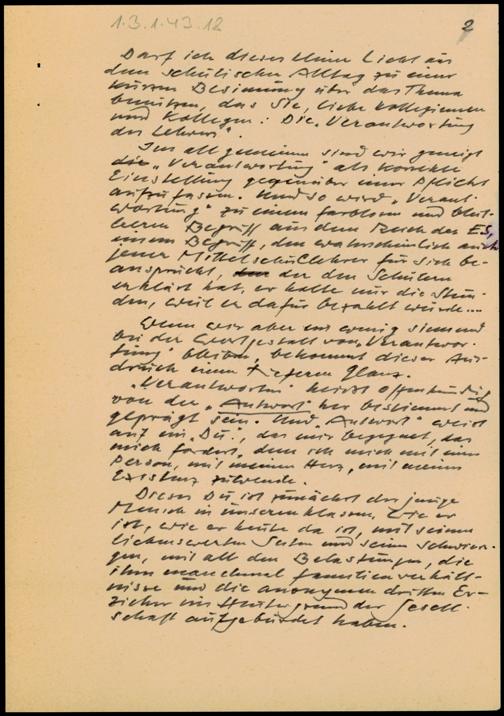 1.3.1.43.12
2
Darf ich dieses kleine Licht aus
dem schulischen Alltag zu einer
kurzen Besinnung über das Thema
benützen, das Sie, liebe Kolleginnen
und Kollegen: Die „Verantwortung
des Lehrers".
Im allgemeinen sind wir geneigt
die „Verantwortung" als korrekte
Einstellung gegenüber einer Pflicht
aufzufassen. Und so wird „Verant-
wortung" zu einem farblosen und blut-
leeren Begriff aus dem Reich des ES,
einem Begriff, den wahrscheinlich auch
jener Mittelschullehrer für sich be-
ansprucht, der den Schülern
erklärt hat, er halte nur die Stun-
den, weil er dafür bezahlt würde....
Wenn wir aber ein wenig sinnend
bei der Wortgestalt von „Verantwor-
tung" bleiben, bekommt dieser Aus-
druck einen tieferen Glanz.
„Verantworten" heisst offenkundig
von der „Antwort" her bestimmt und
geprägt sein. Und „Antwort" weist
auf ein „Du", das mir begegnet, das
mich fordert, dem ich mich mit meiner
Person, mit meinem Herz, mit meiner
Existenz zuwende.
Dieses Du ist zunächst der junge
Mensch in unseren Klassen, wie er
ist, wie er heute da ist, mit seinen
liebenswerten Seiten und seinen Schwierig-
gen, mit all den Belastungen, die
ihm manchmal Familienverhält-
nisse und die anonymen dritten Er-
zieher im Hintergrund der Gesell-
schaft aufgebürdet haben.